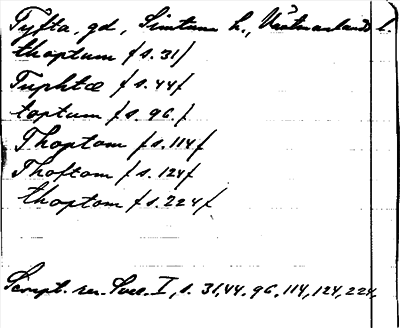 Tyfta, gd, Simtuna h., Västmanlands l.
thoptum /s. 31/
Tuphtæ /s. 44/
toptum /s. 96./
Thoptom /s. 114/
Thoftom /s. 124/
thoptom /s. 224/
Script. rer. Svec. I, s. 31, 44, 96, 114, 124, 224.